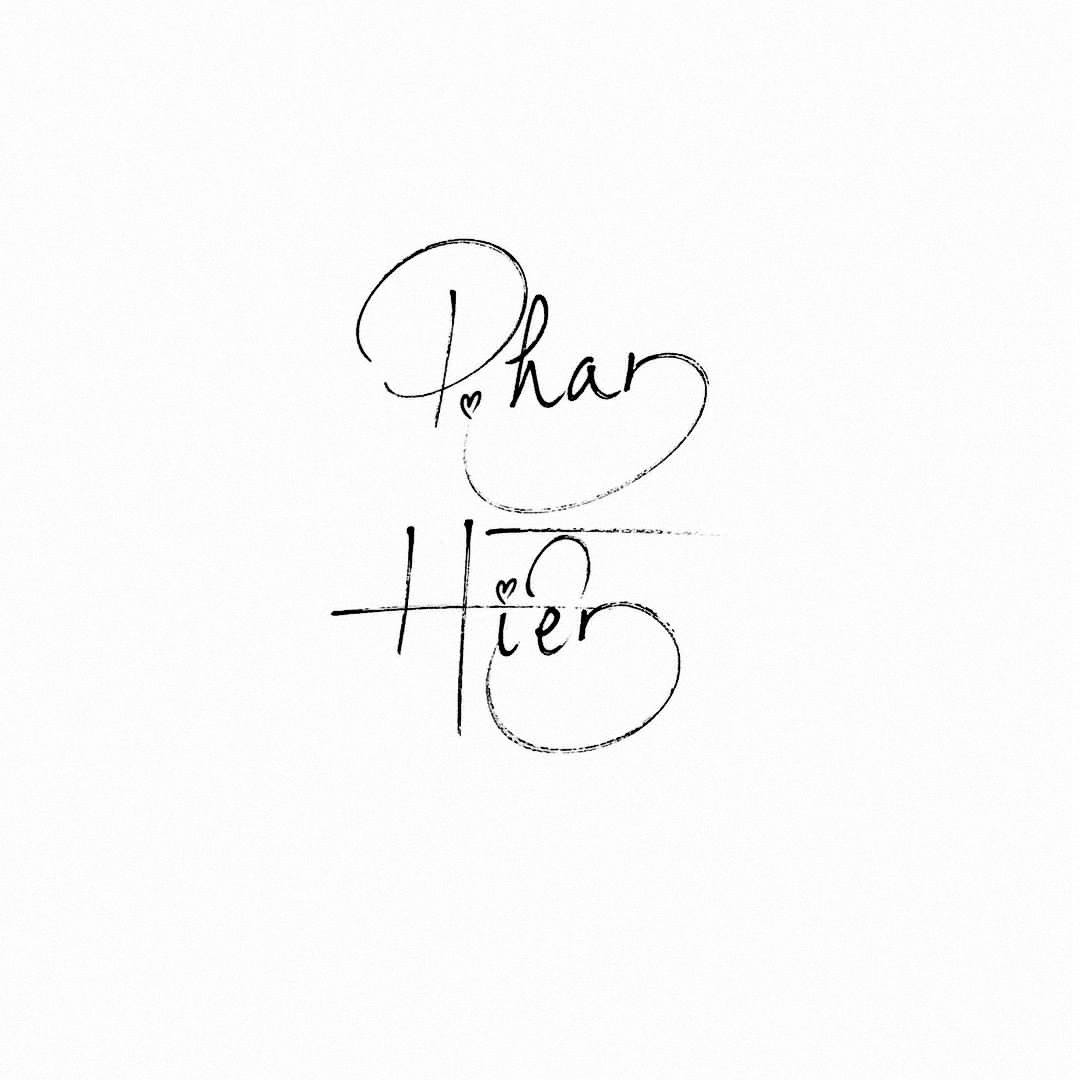 Phan
Hiền